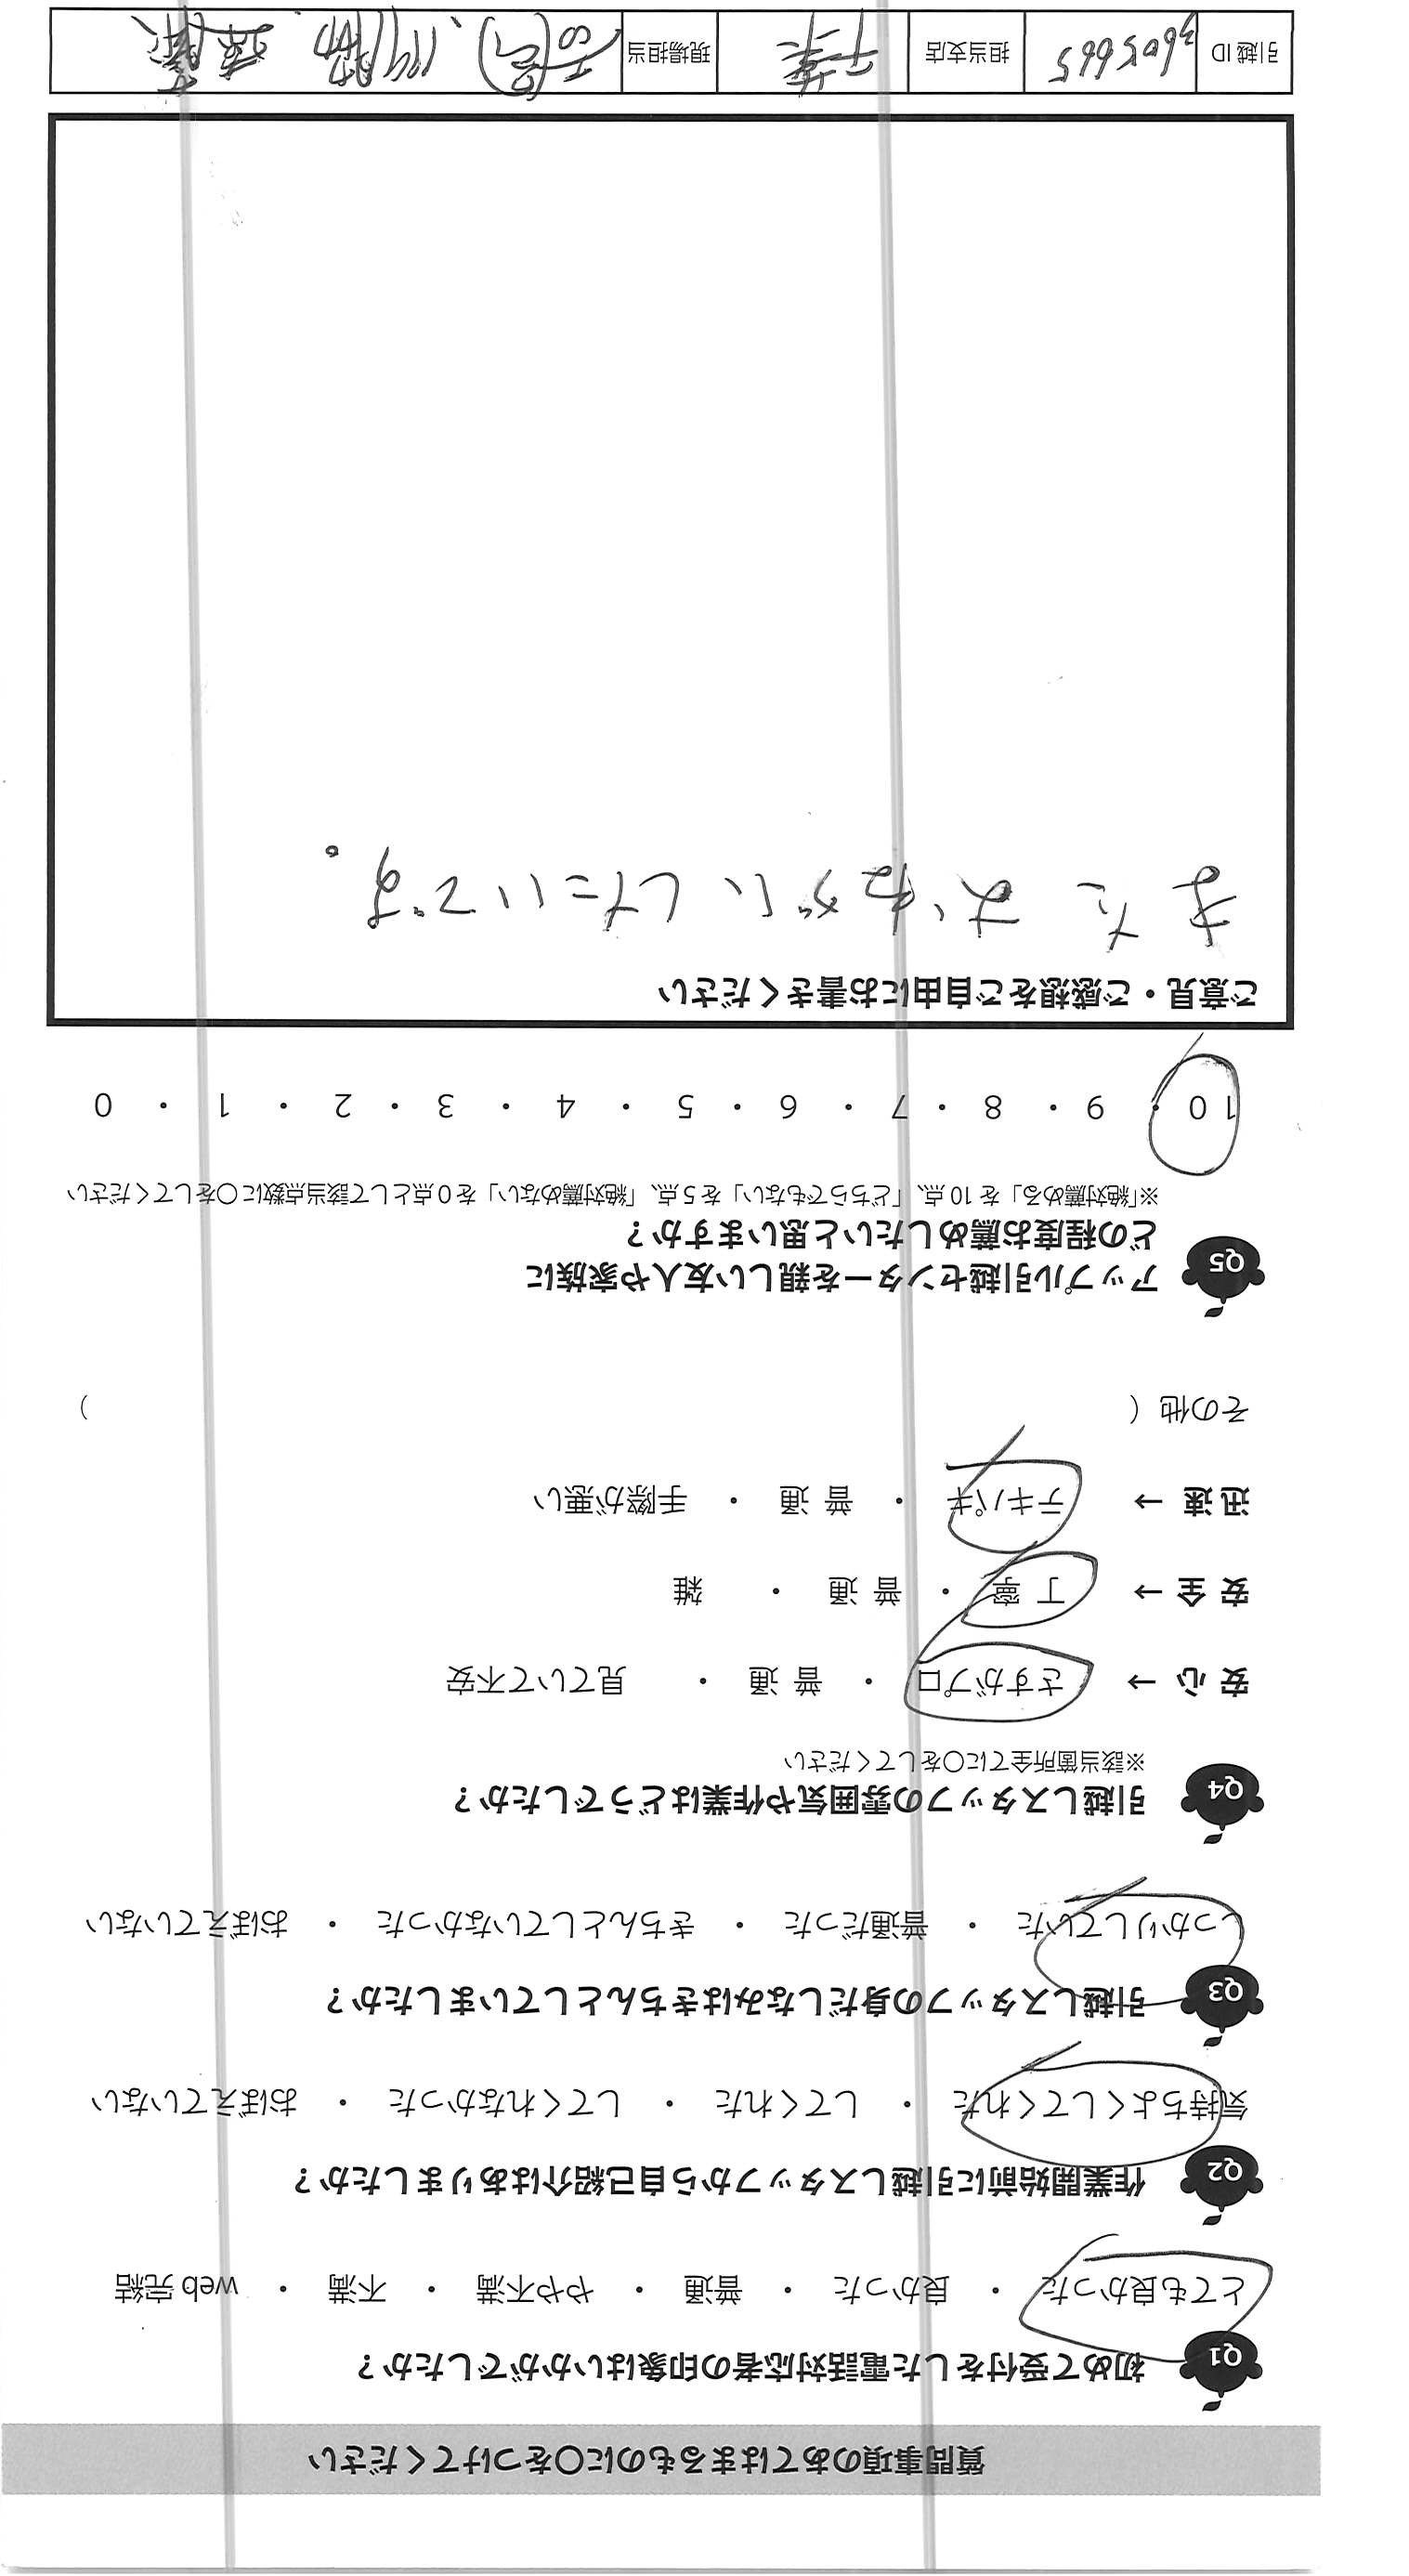 質問事項のあてはまるものに〇をつけてください
Q1 初めて受付をした電話対応者の印象はいかがでしたか？
とても良かった ・ 良かった ・ 普通 ・ やや不満 ・ 不満 ・ web 完結
Q2 作業開始前に引越しスタッフから自己紹介はありましたか？
気持ちよくしてくれた ・ してくれた ・ してくれなかった ・ おぼえていない
Q3 引越しスタッフの身だしなみはきちんとしていましたか？
しっかりしていた ・ 普通だった ・ きちんとしていなかった ・ おぼえていない
Q4 引越しスタッフの雰囲気や作業はどうでしたか？
※該当箇所全てに〇をしてください
安 心 → さすがプロ ・ 普 通 ・ 見ていて不安
安 全 → 丁 寧 ・ 普 通 ・ 雑
迅 速 → テキパキ ・ 普 通 ・ 手際が悪い
その他（ ）
Q5 アップル引越センターを親しい友人や家族に
どの程度お薦めしたいと思いますか？
※「絶対薦める」を 10 点、「どちらでもない」を 5 点、「絶対薦めない」を 0 点として該当点数に〇をしてください
10 ・ 9 ・ 8 ・ 7 ・ 6 ・ 5 ・ 4 ・ 3 ・ 2 ・ 1 ・ 0
ご意見・ご感想をご自由にお書きください
また おねがい したいです。
引越 ID 3605665 担当支店 千葉 現場担当